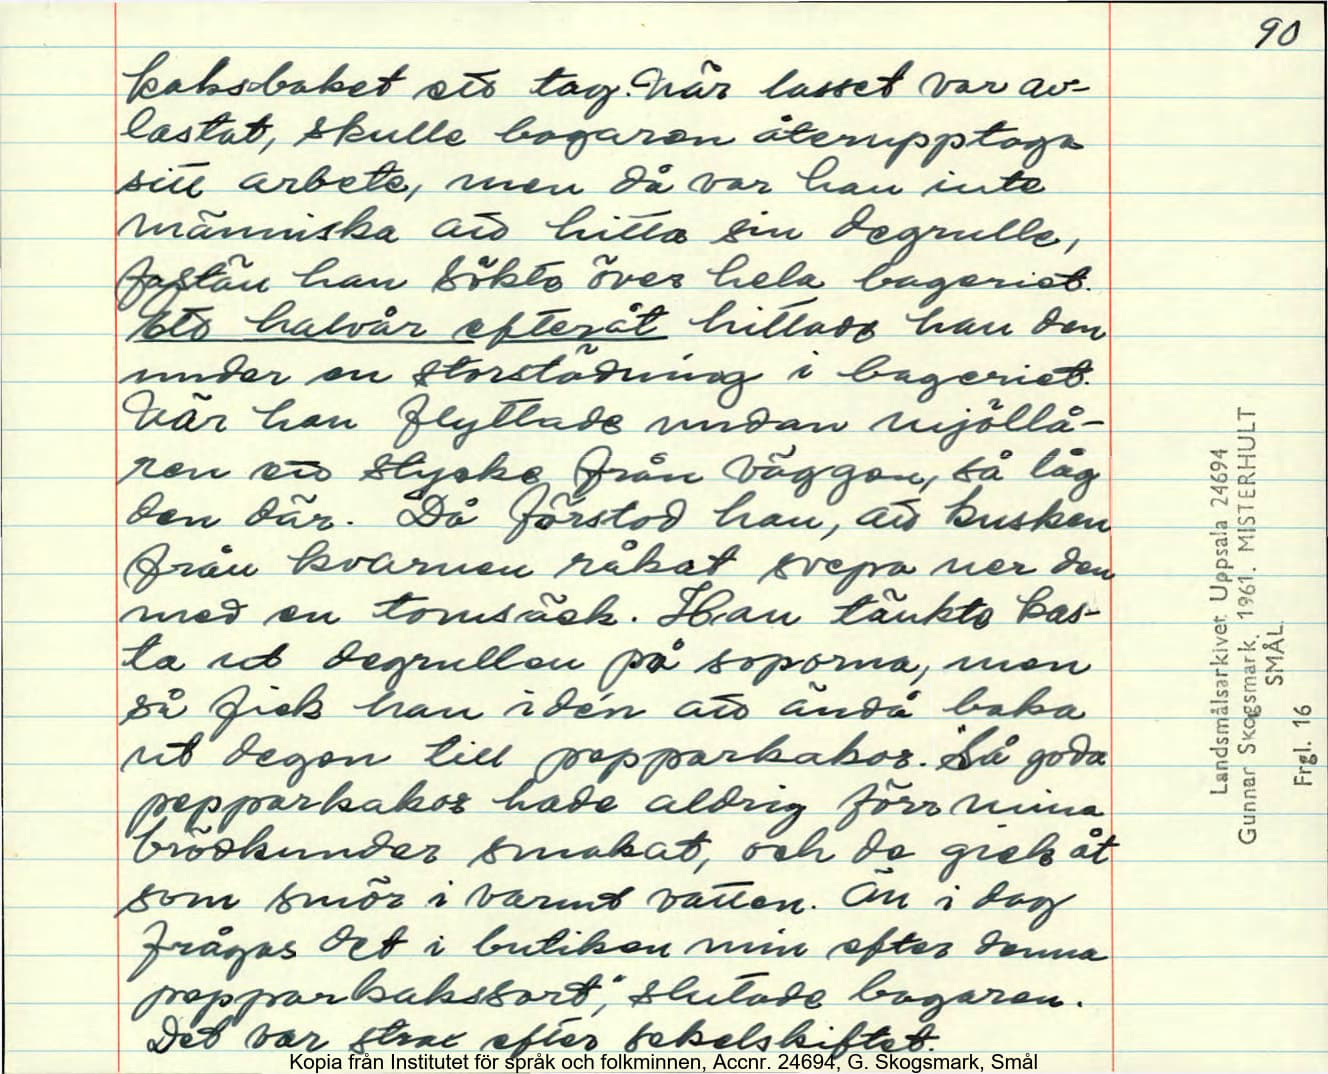 90
kaksbaket ett tag. När lasset var av-
lastat, skulle bagaren återupptaga
sitt arbete, men då var han inte
människa att hitta sin degrulle,
fastän han sökte över hela bageriet.
Ett halvår efteråt hittade han den
under en storstädning i bageriet.
När han flyttade undan mjöllå-
ren ett stycke från väggen, så låg
den där. Då förstod han, att kusken
från kvarnen råkat svepa ner den
med en tomsäck. Han tänkte kas-
ta ut degrullen på soporna, men
så fick han idén att ändå baka
ut degen till pepparkakor. "Så goda
pepparkakor hade aldrig förr mina
brödkunder smakat, och de gick åt
som smör i varmt vatten. Än i dag
frågas det i butiken min efter denna
pepparkakssort", slutade bagaren.
Det var strax efter sekelskiftet.
Landsmålsarkivet Uppsala 24694
Gunnar Skogsmark. 1961. MISTERHULT
SMÅL.
Frgl. 16
Kopia från Institutet för språk och folkminnen, Accnr. 24694, G. Skogsmark, Smål